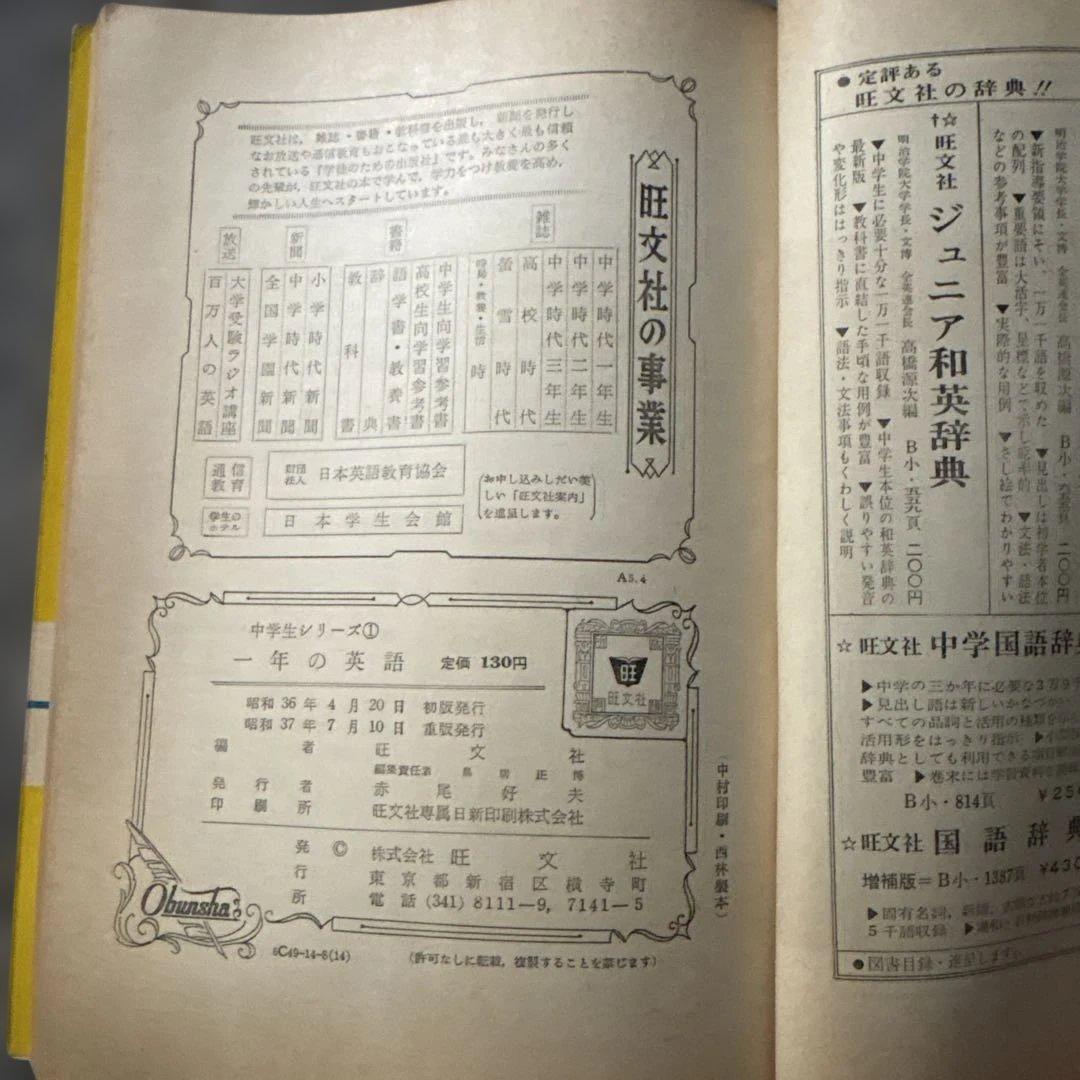 旺文社の事業
旺文社は，雑誌・書籍・教科書を出版し，新聞を発行し
なお放送や通信教育もおこなっている最も大きく最も信頼
されている「学徒のための出版社」です。みなさんの多く
の先輩が，旺文社の本で学んで，学力をつけ教養を高め，
輝かしい人生へスタートしています。
雑誌
中学時代一年生
中学時代二年生
中学時代三年生
高校時代
螢雪時代
時
書籍
中学生向学習参考書
高校生向学習参考書
語学書・教養書
辞典
教科書
新聞
小学時代新聞
中学時代新聞
全国学園新聞
放送
大学受験ラジオ講座
百万人の英語
通信教育
財団法人 日本英語教育協会
学生のホテル
日本学生会館
お申し込みしだい美
しい「旺文社案内」
を進呈します。
A5.4
中学生シリーズ①
一年の英語 定価 130円
昭和 36 年 4 月 20 日 初版発行
昭和 37 年 7 月 10 日 重版発行
編者 旺文社
編集責任者 鳥居正博
発行者 赤尾好夫
印刷所 旺文社専属日新印刷株式会社
発行所 © 株式会社 旺文社
東京都新宿区横寺町
電話 (341) 8111―9, 7141―5
旺文社
Obunsha
6C49-14-6(14)
(許可なしに転載，複製することを禁じます)
(中村印刷・西林製本)
●定評ある
旺文社の辞典!!
明治学院大学学長・文博
高橋源次編 B小・
▼新指導要領にそい，一万一千語を収めた ▼見出しは初学者本位
の配列 ▼重要語は大活字，星標などで示し能率的 ▼文法・語法
などの参考事項が豊富 ▼実際的な用例 ▼さし絵でわかりやすい
†☆旺文社 ジュニア和英辞典
明治学院大学学長・文博 全英連会長 高橋源次編 B小・五五九頁 二〇〇円
▼中学生に必要十分な一万一千語収録 ▼中学生本位の和英辞典の
最新版 ▼教科書に直結した手頃な用例が豊富 ▼誤りやすい発音
や変化形ははっきり指示 ▼語法・文法事項もくわしく説明
☆旺文社 中学国語辞
▶中学の三か年に必要な3万9千
▶見出し語は新しいかなづかい
すべての品詞と活用の種類を
活用形をはっきり指示
辞典としても利用できる
豊富 ▶巻末には学習資料を
B小・814頁
☆旺文社 国語辞典
増補版＝B小・1387頁 ¥430
▶固有名詞，新語，
5千語収録
●図書目録・進呈します。